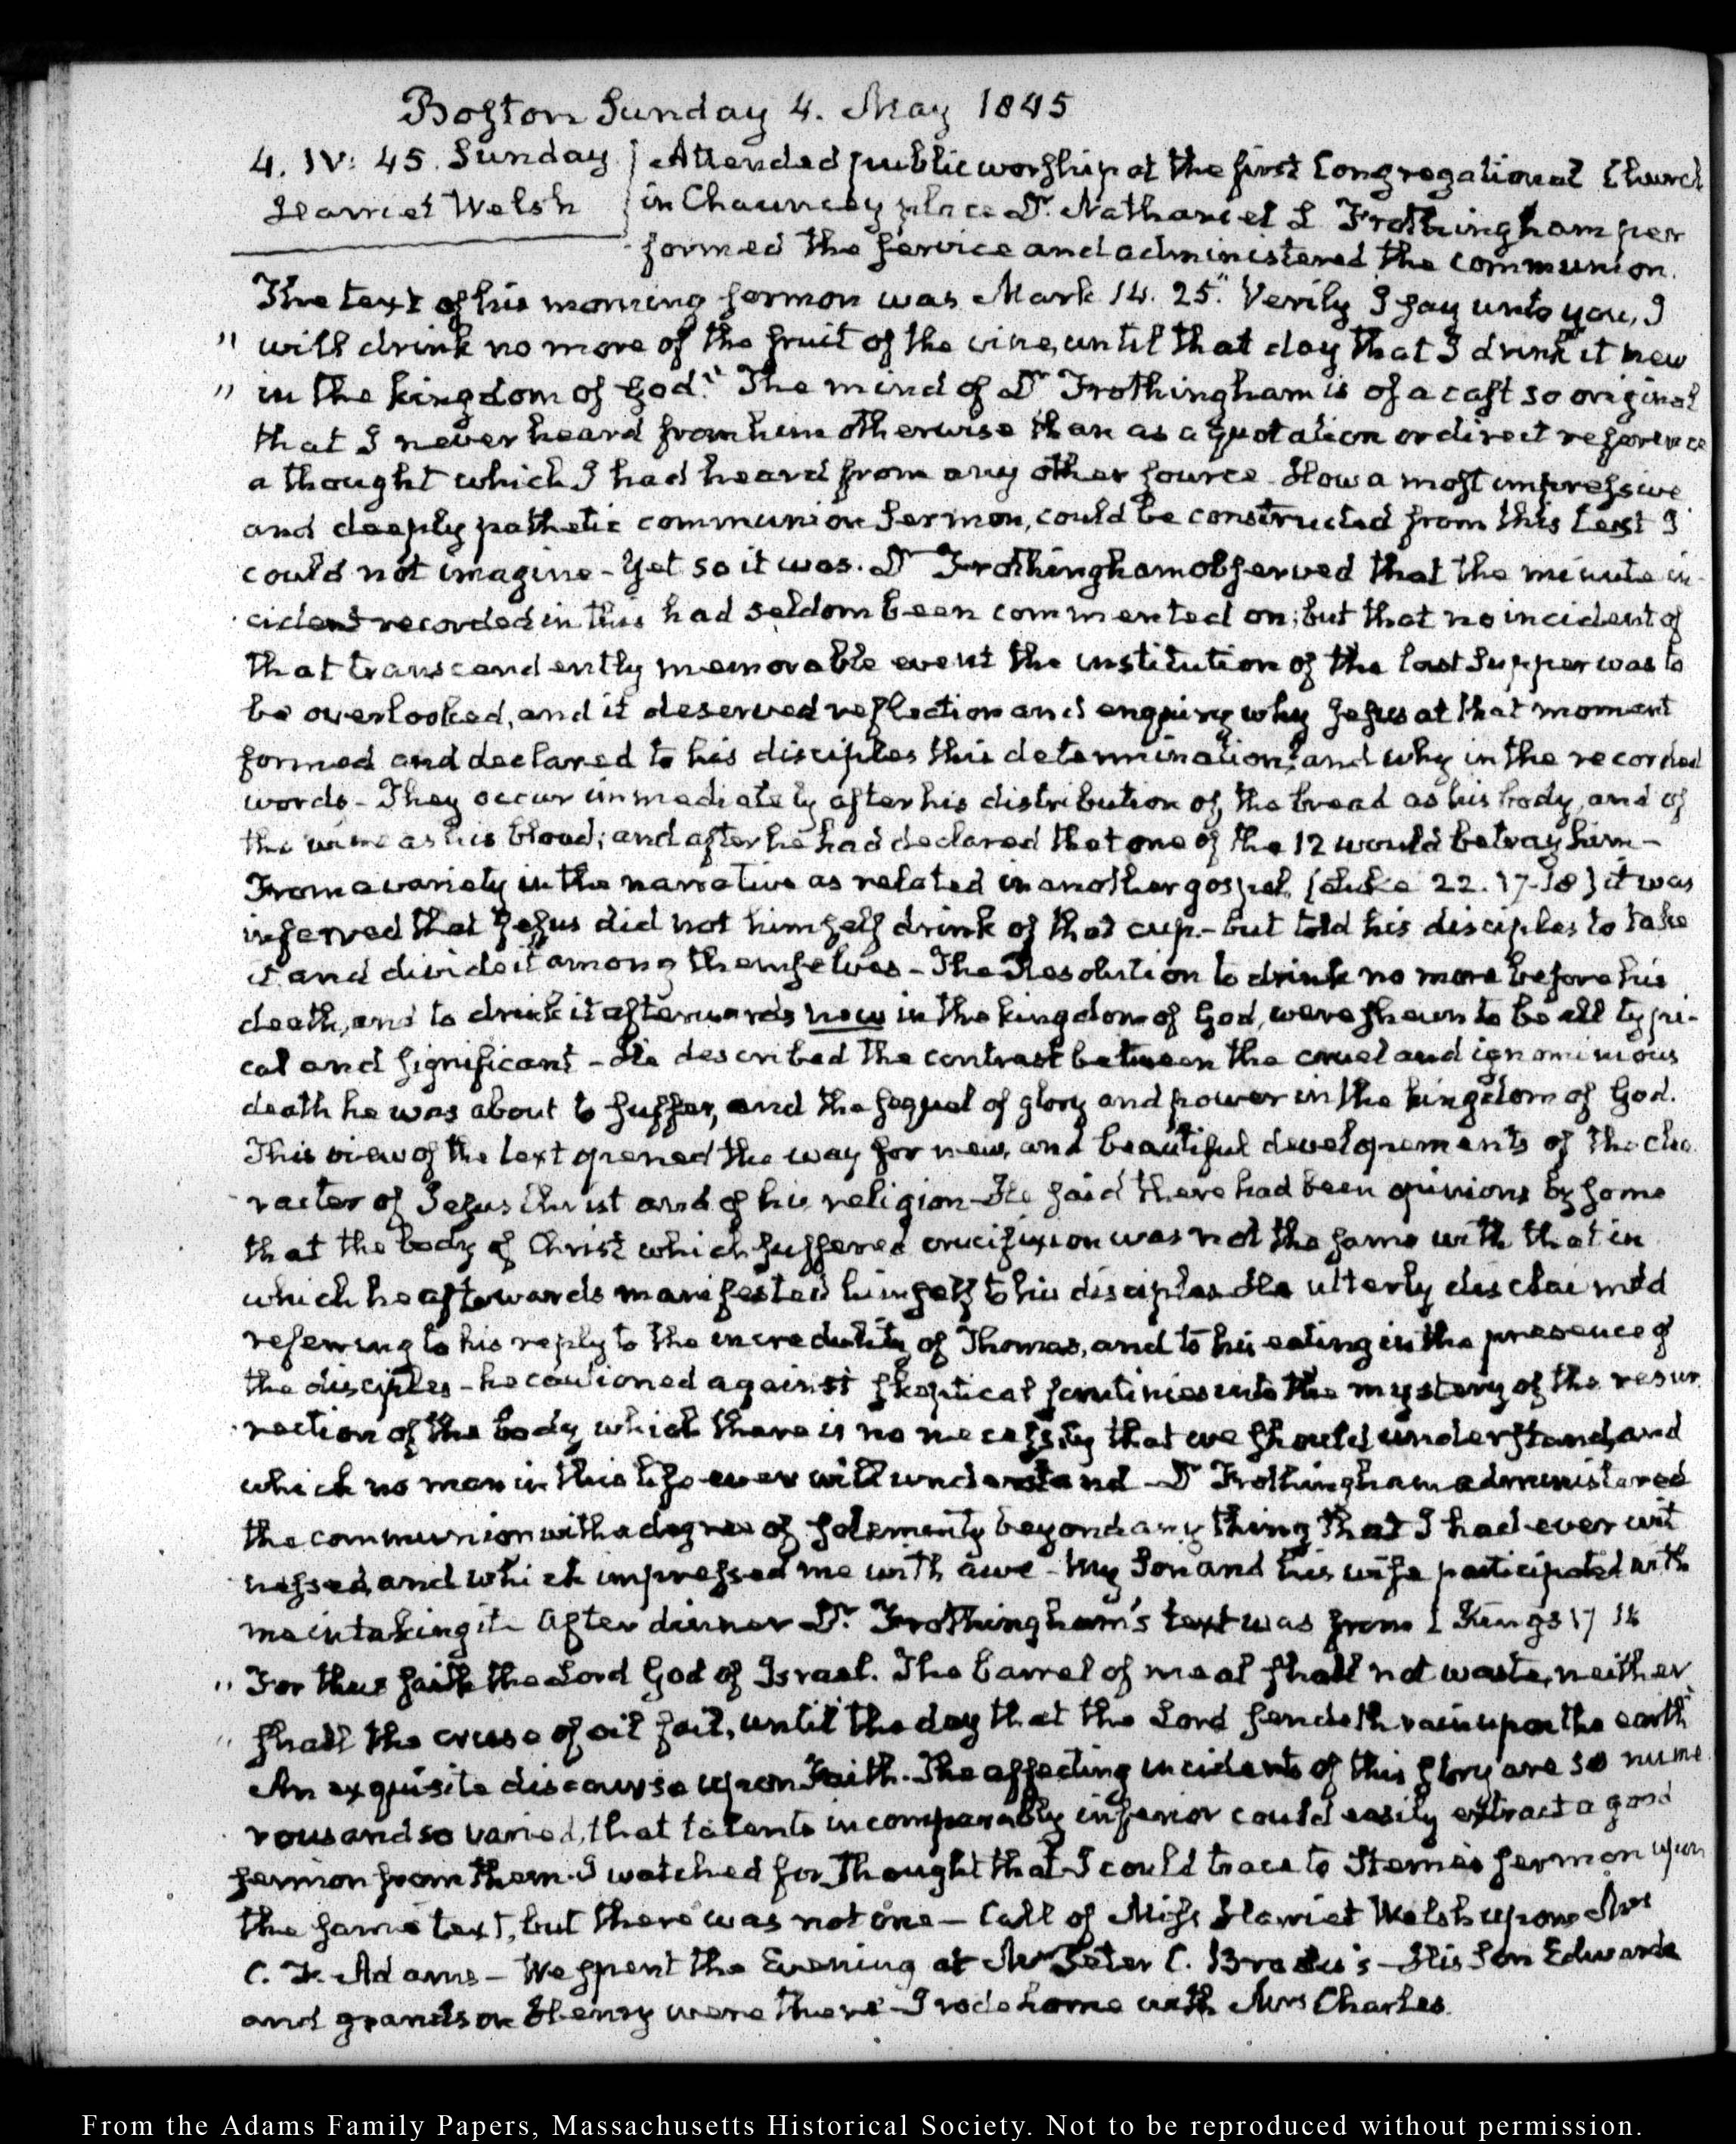 Boston Sunday 4. May 1845
4. IV: 45. Sunday
Harriet Welsh
Attended public worship at the first Congregational Church
in Chauncey place Dr. Nathaniel L Frothingham per
formed the service and administered the communion.
The text of his morning sermon was Mark 14. 25." Verily I say unto you, I
" will drink no more of the fruit of the vine, until that day that I drink it new
" in the kingdom of God." The mind of Dr Frothingham is of a cast so original
that I never heard from him otherwise than as a quotation or direct reference
a thought which I had heard from any other source. How a most impressive
and deeply pathetic communion sermon, could be constructed from this text I
could not imagine - Yet so it was. Dr Frothingham observed that the minute in-
cident recorded in this had seldom been commented on; but that no incident of
that transcendently memorable event the institution of the last Supper was to
be overlooked, and it deserved reflection and enquiry why Jesus at that moment
formed and declared to his disciples this determination? and why in the recorded
words - They occur immediately after his distribution of the bread as his body, and of
the wine as his blood; and after he had declared that one of the 12 would betray him -
From a variety in the narrative as related in another gospel, [Luke 22. 17-18] it was
inferred that Jesus did not himself drink of that cup - but told his disciples to take
it and divide it among themselves - The Resolution to drink no more before his
death, and to drink it afterwards new in the kingdom of God, were shewn to be all typi-
cal and significant - He described the contrast between the cruel and ignominious
death he was about to suffer, and the sequel of glory and power in the kingdom of God.
This view of the text opened the way for new, and beautiful developements of the cha
racter of Jesus Christ and of his religion - He said there had been opinions by some
that the body of Christ which suffered crucifixion was not the same with that in
which he afterwards manifested himself to his disciples He utterly disclaimed
referring to his reply to the incredulity of Thomas, and to his eating in the presence of
the disciples - he cautioned against skeptical scrutinies into the mystery of the resur
rection of the body which there is no necessity that we should understand, and
which no man in this life ever will understand - Dr Frothingham administered
the communion with a degree of solemnity beyond any thing that I had ever wit
nessed, and which impressed me with awe - My Son and his wife participated with
me in taking it - After dinner Dr. Frothingham's text was from 1 Kings 17 14
" For thus saith the Lord God of Israel. The barrel of meal shall not waste, neither
" shall the cruse of oil fail, until the day that the Lord sendeth rain upon the earth"
An exquisite discourse upon Faith. The affecting incidents of this story are so nume
rous and so varied, that talents incomparably inferior could easily extract a good
sermon from them. I watched for Thought that I could trace to Sterne's sermon upon
the same text, but there was not one - Call of Miss Harriet Welsh upon Mrs
C. F. Adams - We spent the Evening at Mr Peter C. Brooks's - His Son Edward
and grandson Henry were there - I rode home with Mrs Charles.
From the Adams Family Papers, Massachusetts Historical Society. Not to be reproduced without permission.